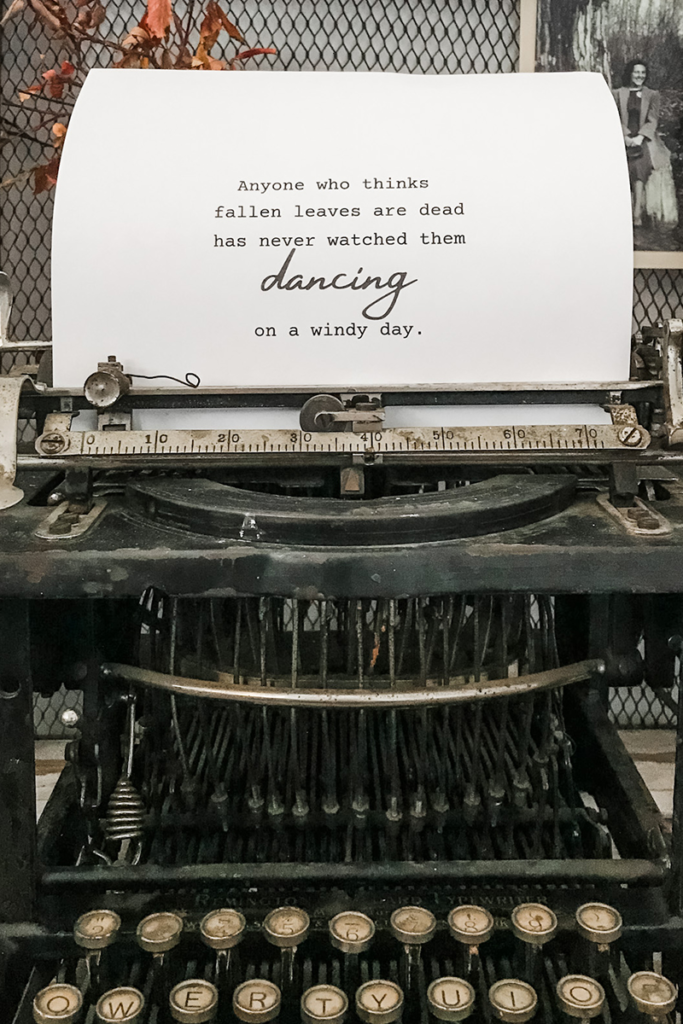 Anyone who thinks
fallen leaves are dead
has never watched them
dancing
on a windy day.
0 10 20 30 40 50 60 70
REMINGTON STANDARD TYPEWRITER
2 3 4 5 6 7 8 9 -
Q W E R T Y U I O P